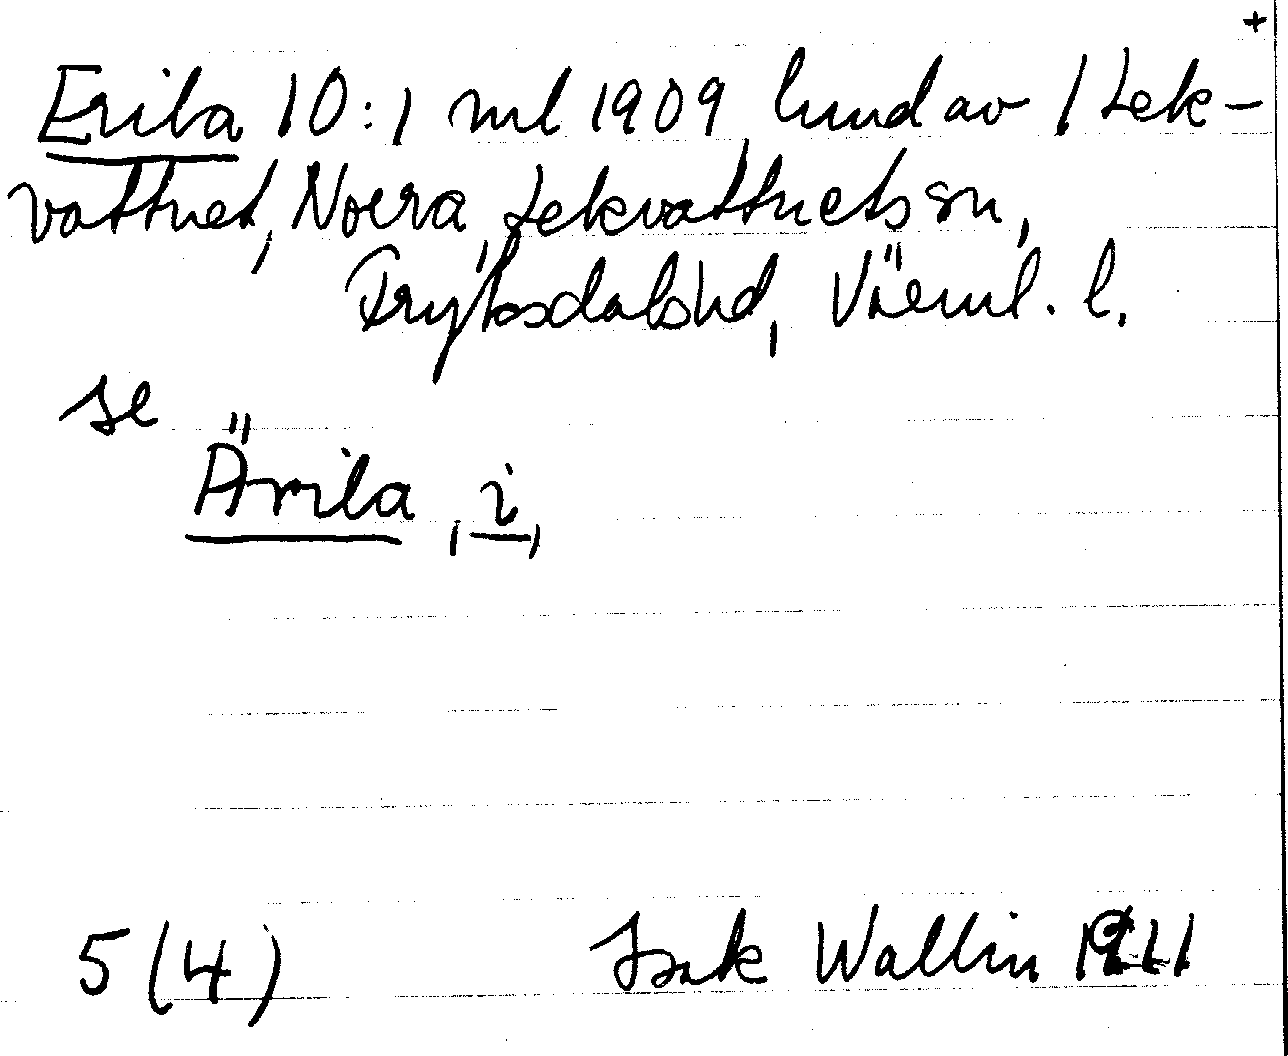 +
Erila 10:1 ml 1909 hmd av 1 Lek-
vattnet, Norra, Lekvattnets sn,
Fryksdals hd, Värml. l.
se
Ärila, i,
5 (4) Isak Wallin